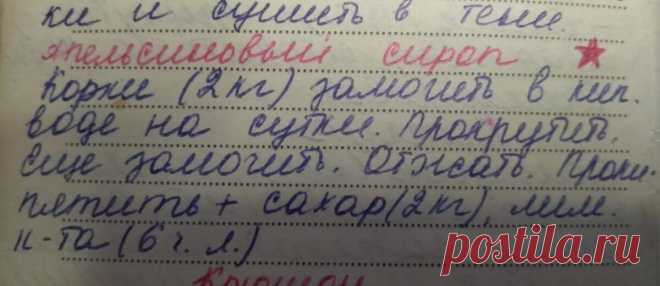 ки и сушить в тени.
Апельсиновый сироп
Корки (2 кг) замочить в кип.
воде на сутки. Прокрутить.
Еще замочить. Отжать. Проки-
пятить + сахар (2 кг), лим.
к-та (6 ч. л.)
Крюшон
postila.ru